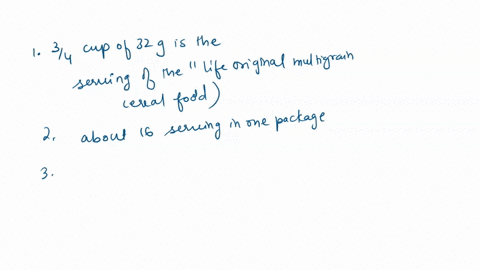 1. 3/4 cup of 32 g is the
serving of the "life original multigrain
cereal fodd)
2. about 16 serving in one package
3.